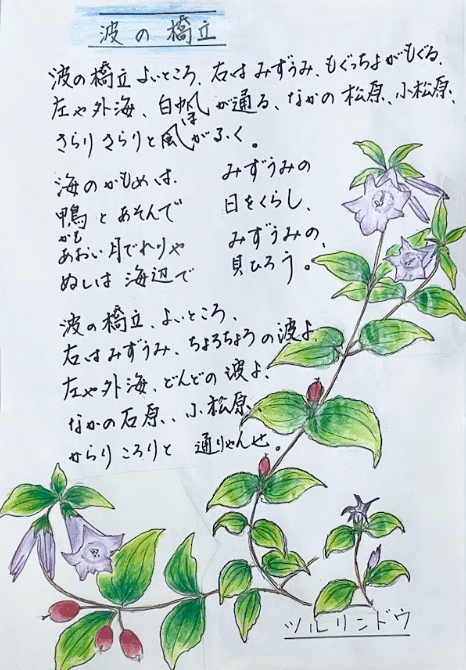 波の橋立
波の橋立よいところ、右はみずうみ、もぐっちょがもぐる、
左ゃ外海、白帆が通る、なかの松原、小松原、
ほ
さらりさらりと風がふく。
海のかもめは
鴨とあそんで
かも
あおい月でれりゃ
ぬしは海辺で
みずうみの
日をくらし、
みずうみの、
貝ひろう。
波の橋立、よいところ、
右はみずうみ、ちょろちょろの波よ、
左ゃ外海、どんどの波よ、
なかの石原、、小松原、
からりころりと 通りゃんせ。
ツルリンドウ